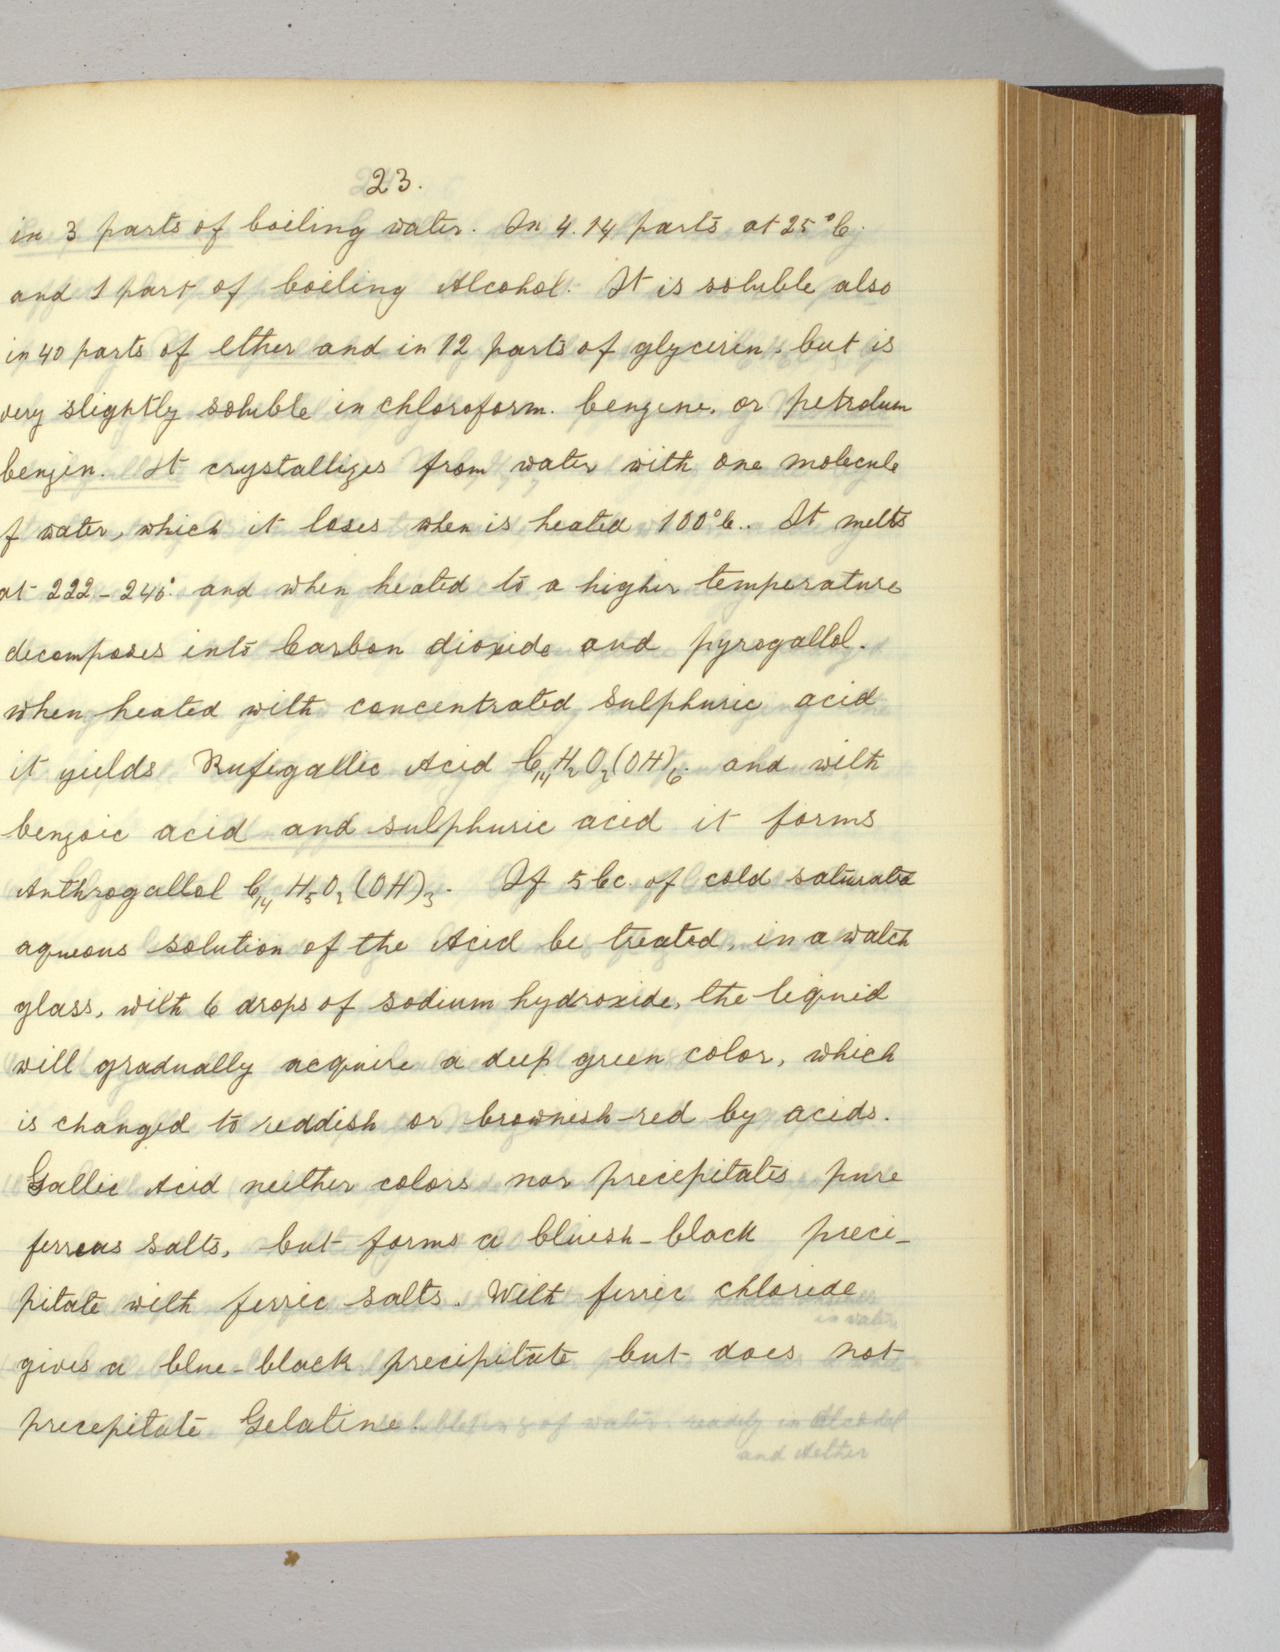 23.
in 3 parts of boiling water. In 4.14 parts at 25°C.
and 1 part of boiling Alcohol. It is soluble also
in 40 parts of Ether and in 12 parts of glycerin, but is
very slightly soluble in chloroform. benzene, or petrolum
benzin. It crystallizes from water with one molecule
f water, which it loses when is heated 100°C.. It melts
at 222-240° and when heated to a higher temperature
decomposes into Carbon dioxide and pyrogallol.
when heated with concentrated sulphuric acid
it yields Rufigallic Acid C₁₄H₂O₂(OH)₆. and with
benzoic acid and sulphuric acid it forms
Anthrogallol C₁₄H₅O₂(OH)₃. If 5 Cc. of cold saturated
aqueous solution of the Acid be treated, in a watch
glass, with 6 drops of sodium hydroxide, the liquid
will gradually acquire a deep green color, which
is changed to reddish or brownish-red by acids.
Gallic Acid neither colors nor precipitates pure
ferrous salts, but forms a bluish-black preci-
pitate with ferric salts. With ferric chloride
in water
gives a blue-black precipitate but does not
precepitate Gelatine. of water. readily in Alcohol
and Aether